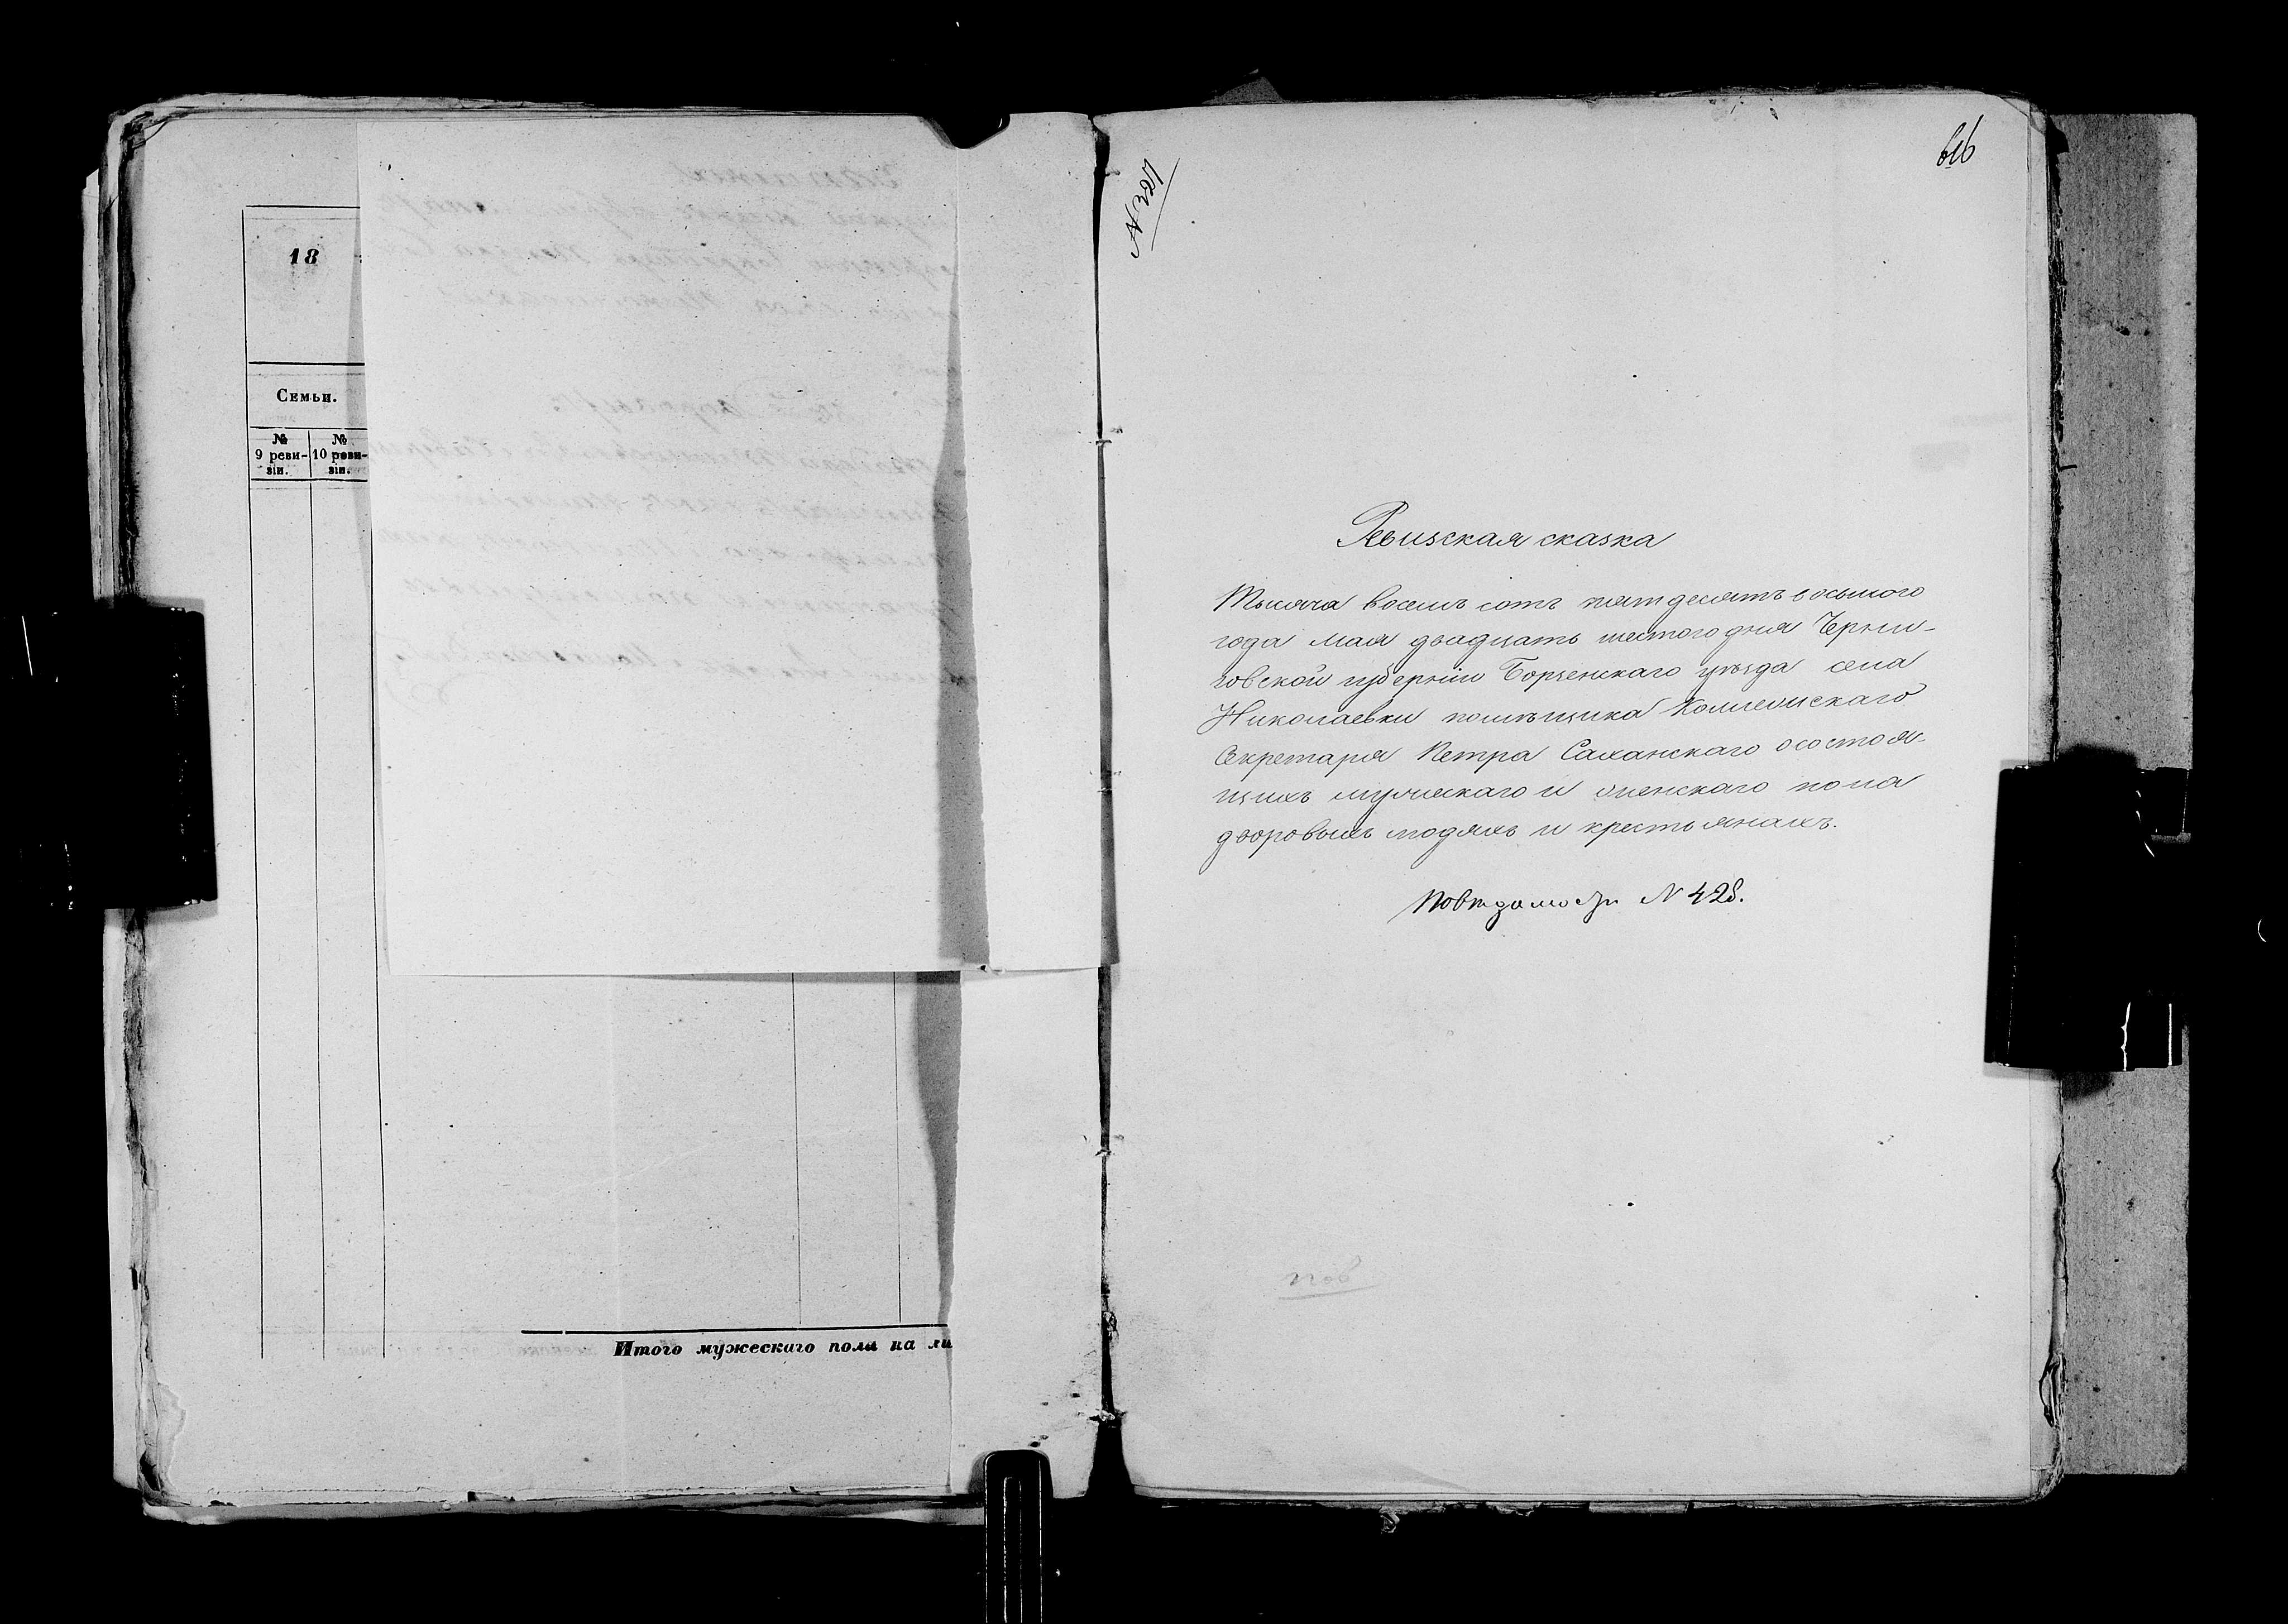 18
Семьи.
№ 9 реви-зіи.
№ 10 реви-зіи.
Итого мужескаго пола на ли
616
Ревизская сказка
Тысяча восемъ сотъ пятдесятъ восьмого
года мая двадцать шестого дня Черни-
говской губерніи Борзенскаго уѣзда села
Николаевки помѣщика Коллежскаго
Секретаря Петра Саханскаго о состоя-
щихъ мужескаго и женскаго пола
дворовыхъ людяхъ и крестьянахъ.
По вѣдомости N 428.
пов